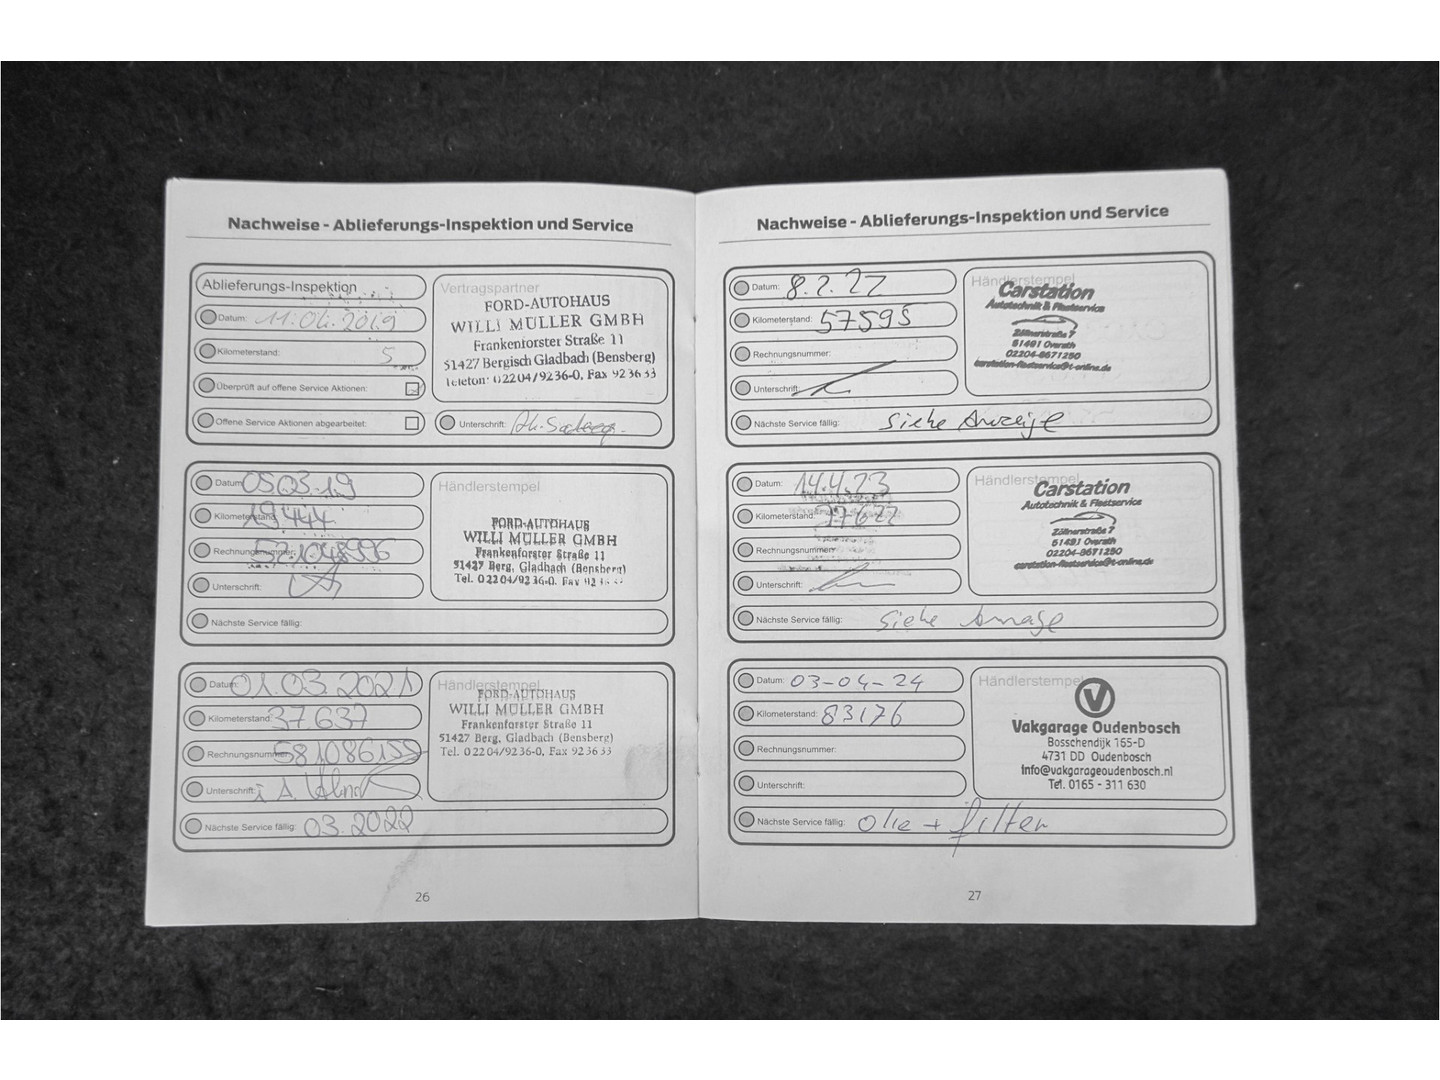 Nachweise - Ablieferungs-Inspektion und Service
Ablieferungs-Inspektion
Datum: 11.04.2019
Kilometerstand: 5
Überprüft auf offene Service Aktionen:
Offene Service Aktionen abgearbeitet:
Vertragspartner
FORD-AUTOHAUS
WILLI MÜLLER GMBH
Frankenforster Straße 11
51427 Bergisch Gladbach (Bensberg)
Telefon: 02204/9236-0, Fax 923633
Unterschrift:
Datum
Kilometerstand: 19444
Rechnungsnummer:
Unterschrift:
Nächste Service fällig:
Händlerstempel
FORD-AUTOHAUS
WILLI MÜLLER GMBH
Frankenforster Straße 11
51427 Berg. Gladbach (Bensberg)
Tel. 02204/9236-0, Fax
Datum: 01.03.2021
Kilometerstand: 37637
Rechnungsnummer:
Unterschrift: i A.
Nächste Service fällig: 03.2022
Händlerstempel
FORD-AUTOHAUS
WILLI MÜLLER GMBH
Frankenforster Straße 11
51427 Berg. Gladbach (Bensberg)
Tel. 02204/9236-0, Fax 923633
26
Nachweise - Ablieferungs-Inspektion und Service
Datum: 8.2.22
Kilometerstand: 57595
Rechnungsnummer:
Unterschrift:
Nächste Service fällig: siehe Anzeige
Händlerstempel
Carstation
Autotechnik & Fleetservice
Zöllnerstraße 7
51491 Overath
02204-8671250
carstation-fleetservice@t-online.de
Datum: 14.4.23
Kilometerstand:
Rechnungsnummer:
Unterschrift:
Nächste Service fällig: siehe
Händlerstempel
Carstation
Autotechnik & Fleetservice
Zöllnerstraße 7
51491 Overath
02204-8671250
carstation-fleetservice@t-online.de
Datum: 03-04-24
Kilometerstand: 83176
Rechnungsnummer:
Unterschrift:
Nächste Service fällig: olie + filter
Händlerstempel
V
Vakgarage Oudenbosch
Bosschendijk 165-D
4731 DD Oudenbosch
info@vakgarageoudenbosch.nl
Tel. 0165 - 311 630
27